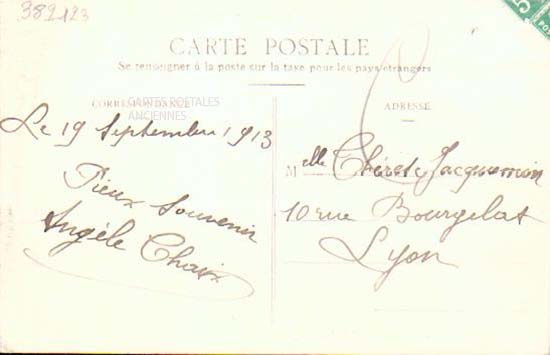 389123
5
CARTE POSTALE
Se renseigner à la poste sur la taxe pour les pays étrangers
CORRESPONDANCE
CARTES POSTALES
ANCIENNES
Le 19 Septembre 1913
Pieux Souvenir
Angèle Chaix
ADRESSE
Melle Jacquemin
10 rue Bourgelat
Lyon